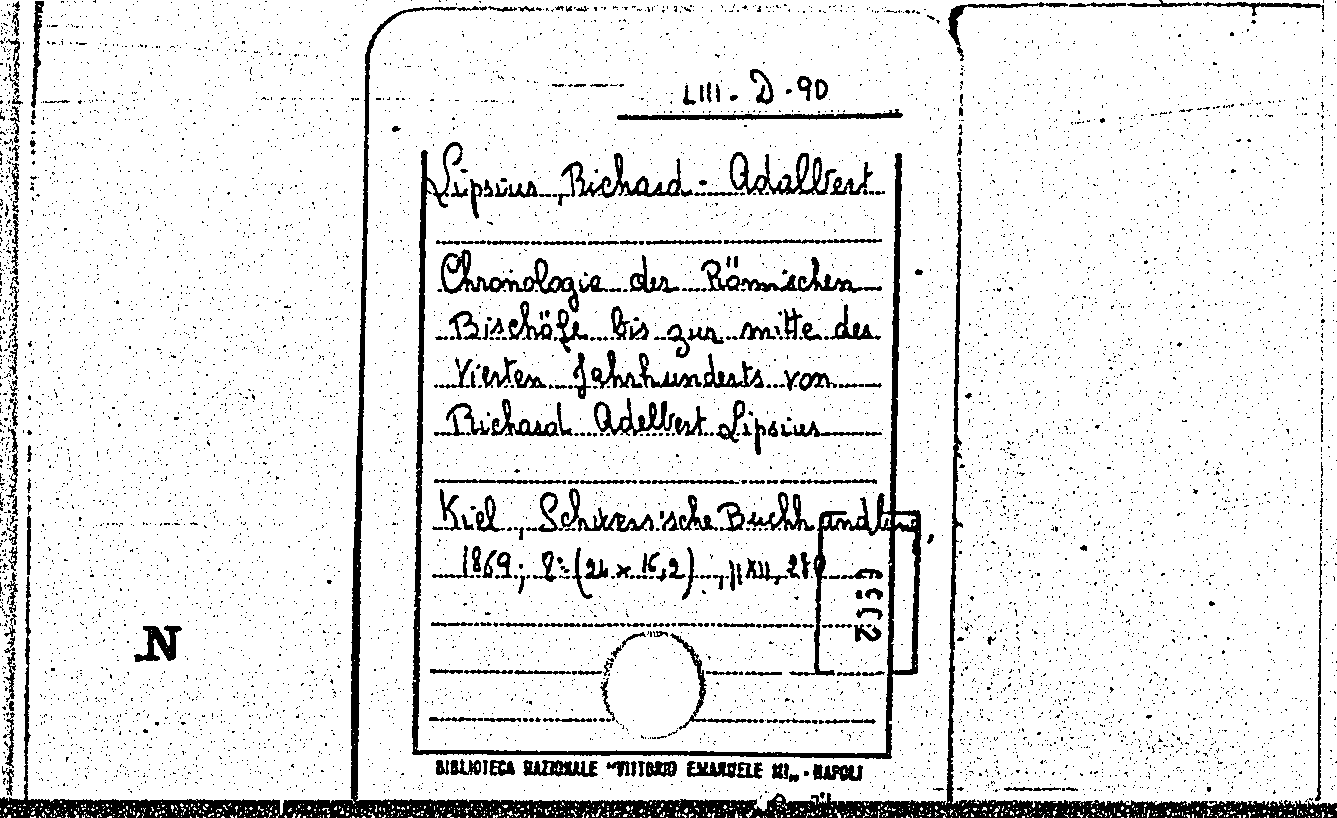 LIII - D - 90
Lipsius, Richard - Adalbert
Chronologie der Römischen
Bischöfe bis zur mitte des
Vierten Jahrhunderts von
Richard Adelbert Lipsius
Kiel, Schwers'sche Buchhandlung,
1869; 8° (24 x 16,2), pp XII, 280
N
BIBLIOTECA NAZIONALE "VITTORIO EMANUELE III„ - NAPOLI